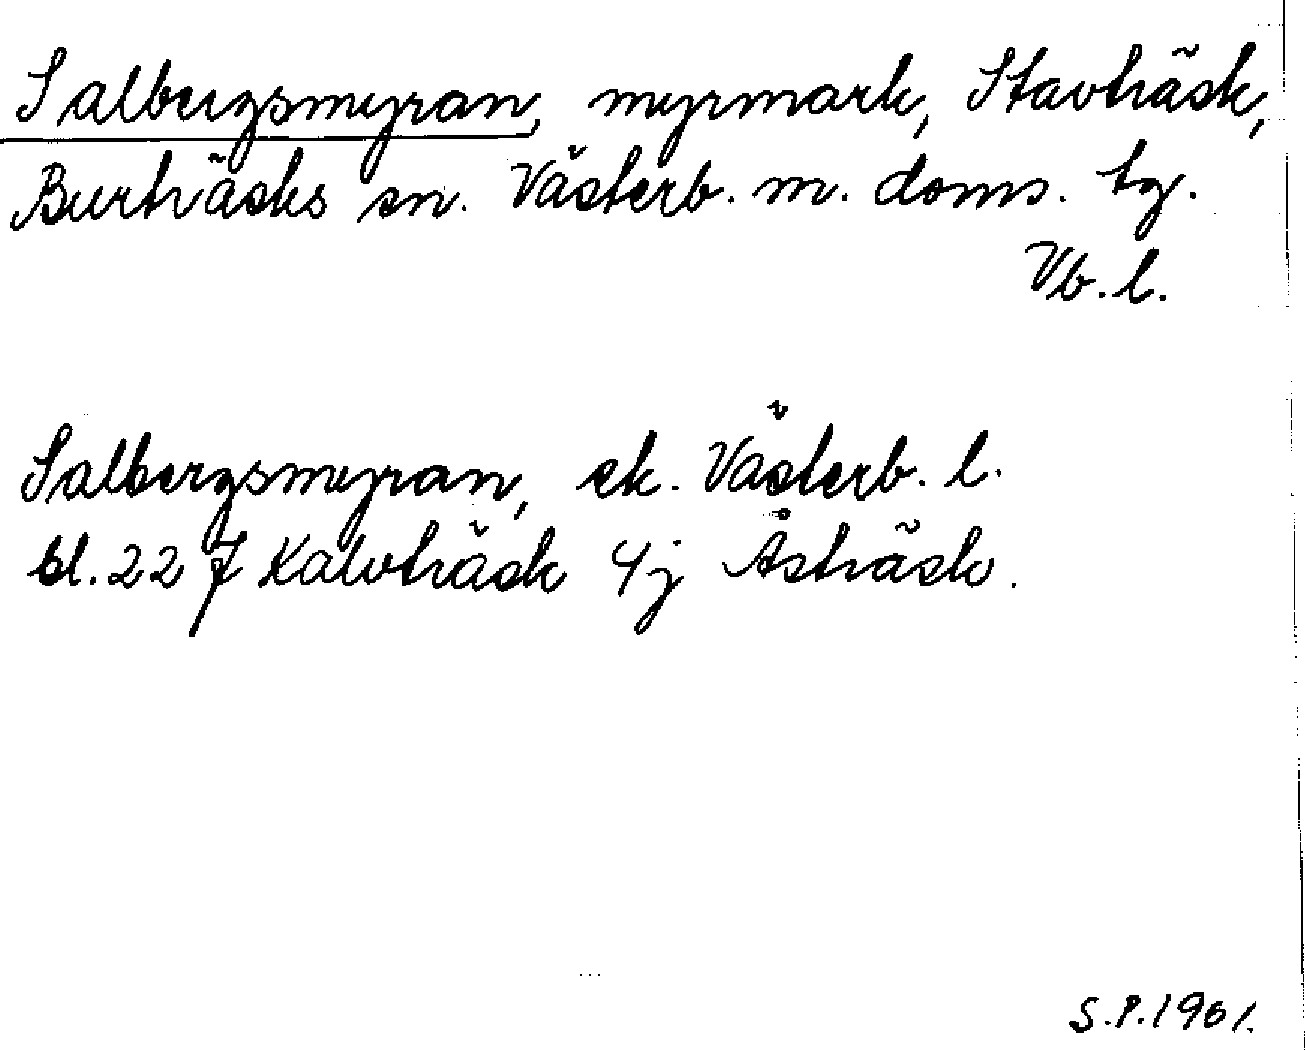 Salbergsmyran, myrmark, Stavträsk,
Burträsks sn. Västerb. m. doms. tg.
Vb. l.
Salbergsmyran, ek. Västerb. l.
bl. 22 J Kalvträsk 4j Åsträsk.
S.P. 1961.